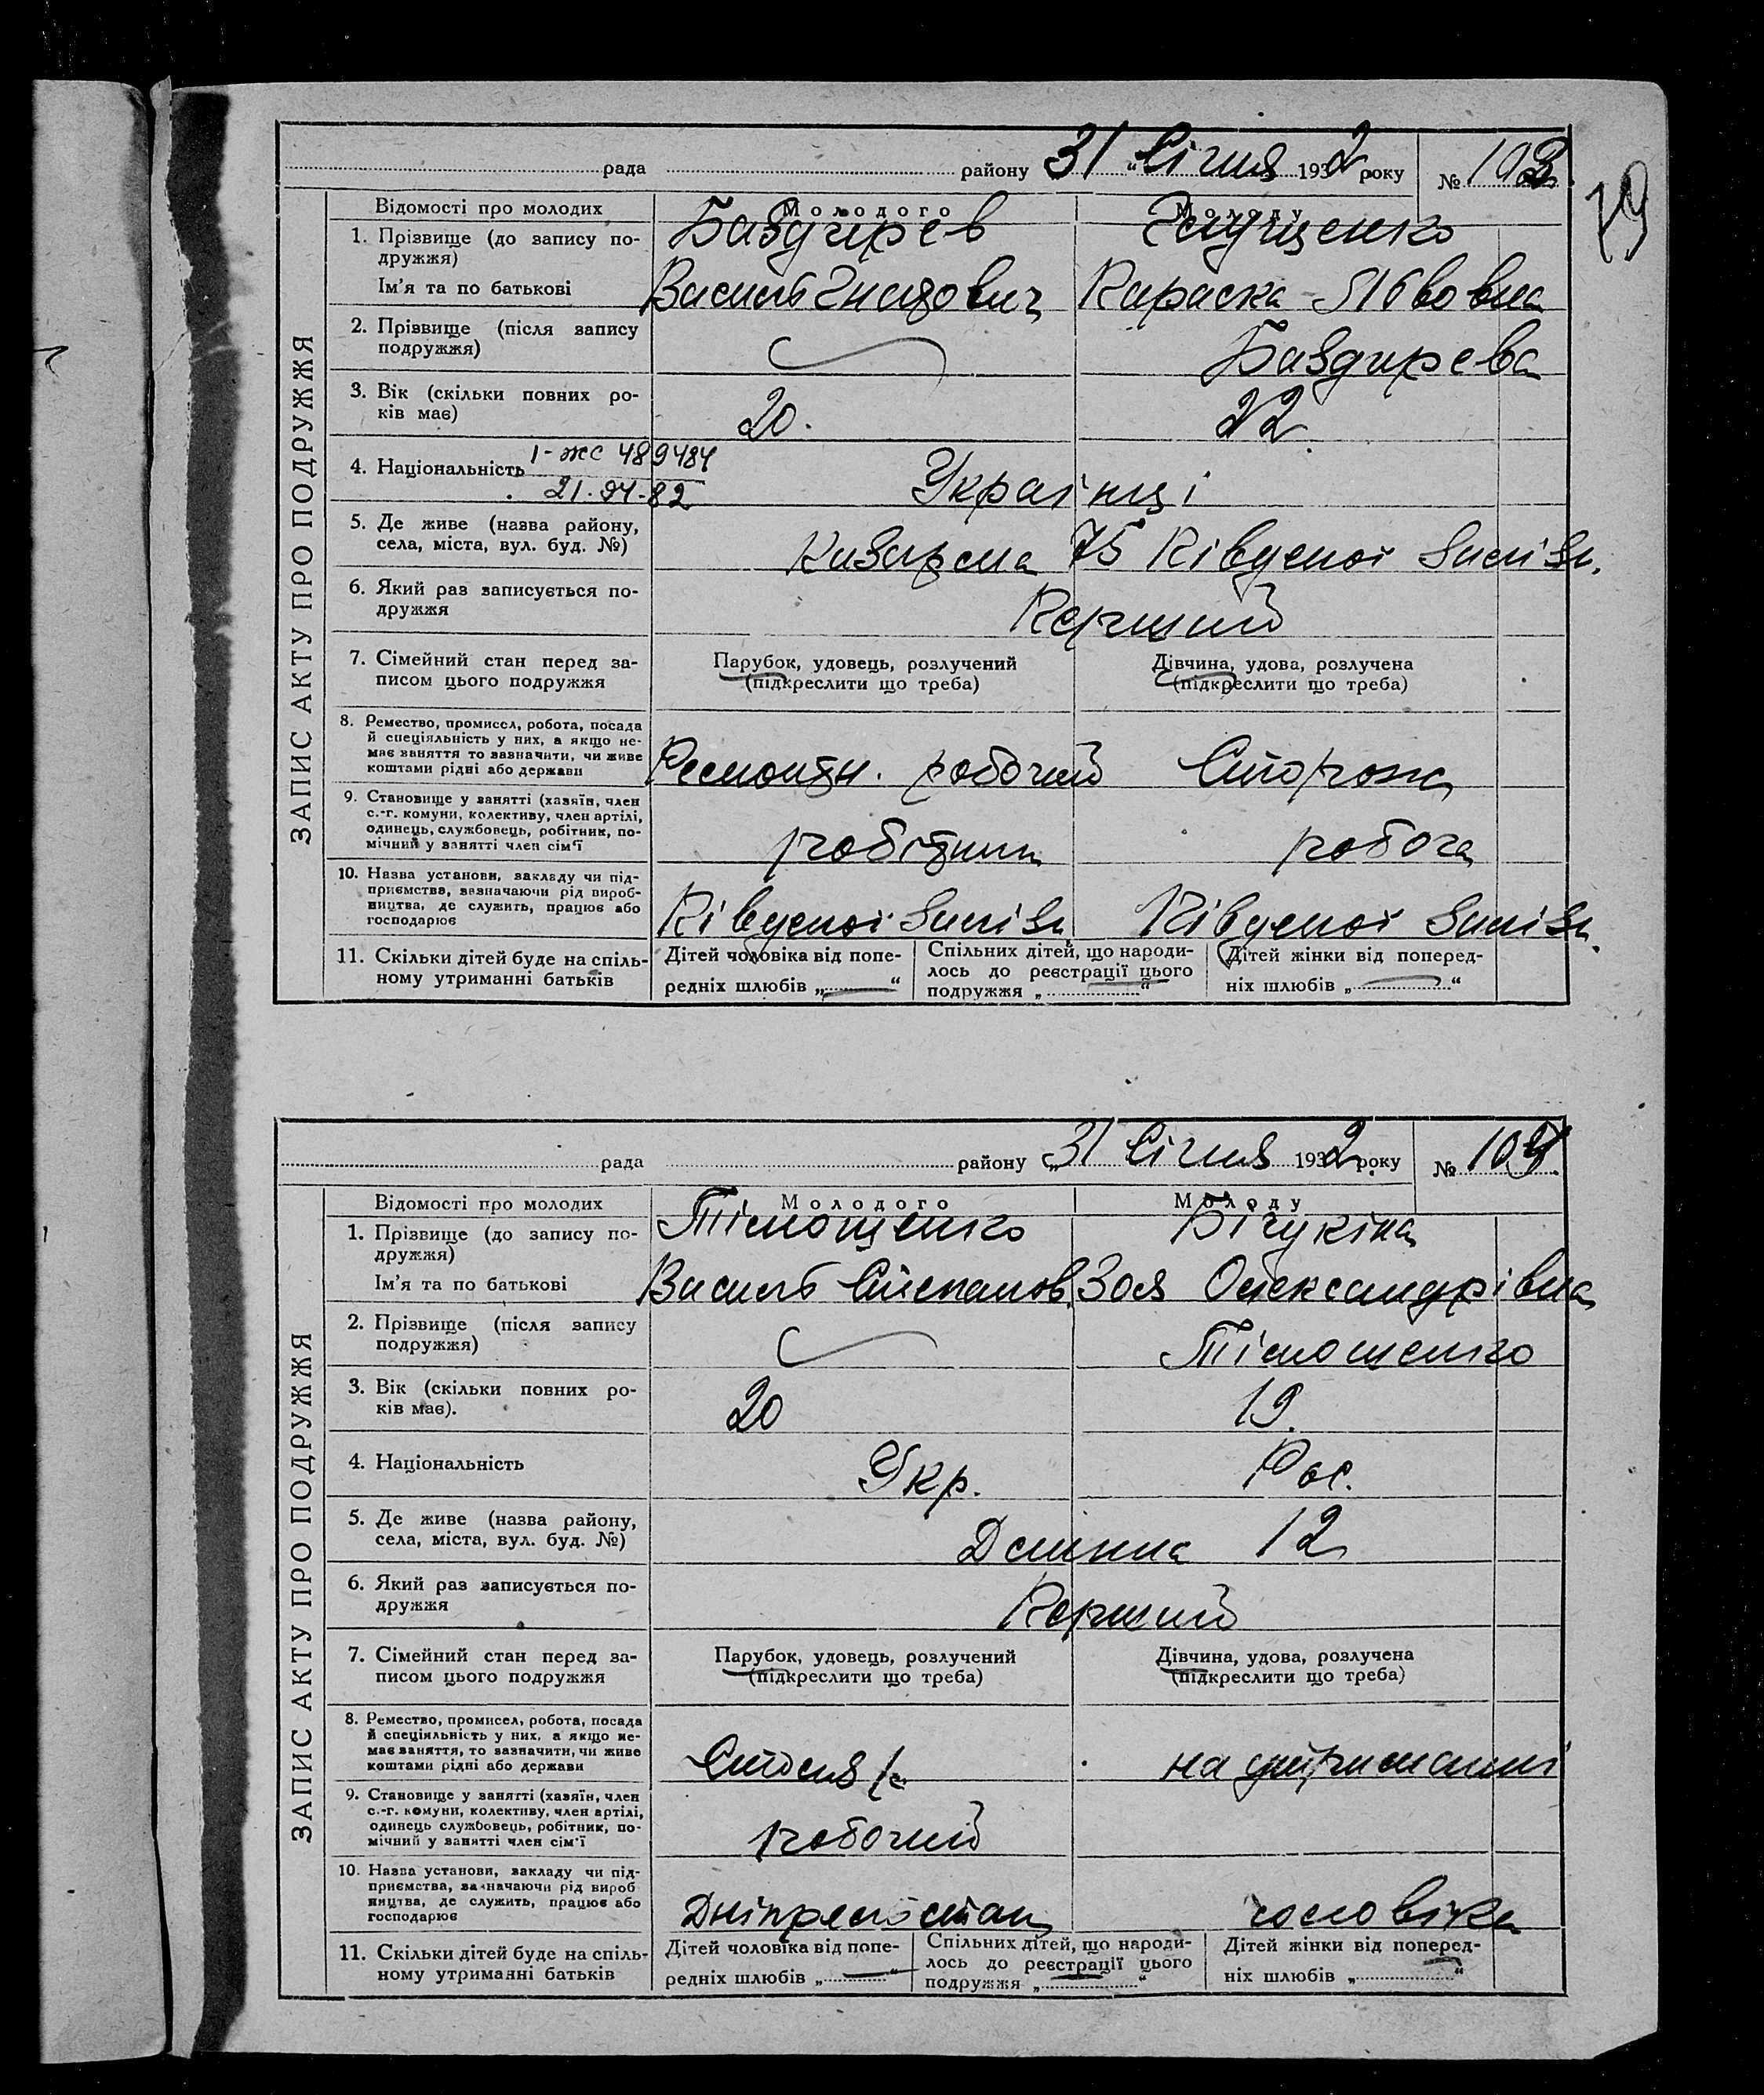 рада району 31 " Січня 1932 року № 103
79
Відомості про молодих Молодого Молоду
1. Прізвище (до запису по- Баздирев
дружжя)
Ім'я та по батькові Василь Гнатович Параска Львовна
2. Прізвище (після запису
подружжя) Баздирева
3. Вік (скільки повних ро-
ків має) 20. 22.
4. Національність 1-жс 489484
21.04.82 Українці
5. Де живе (назва району,
села, міста, вул. буд. №) Казарма 75 Південної Залізн.
6. Який раз записується по-
дружжя Перший
7. Сімейний стан перед за- Парубок, удовець, розлучений Дівчина, удова, розлучена
писом цього подружжя (підкреслити що треба) (підкреслити що треба)
8. Ремество, промисел, робота, посада
й спеціяльність у них, а якщо не-
має заняття то зазначити, чи живе
коштами рідні або держави Ремонтн. робочий Сторожа
9. Становище у занятті (хазяїн, член
с.-г. комуни, колективу, член артілі,
одинець, службовець, робітник, по-
мічний у занятті член сім'ї робітник робоча
10. Назва установи, закладу чи під-
приємства, зазначаючи рід вироб-
ництва, де служить, працює або
господарює Південної Залізн Південної Залізн.
11. Скільки дітей буде на спіль- Дітей чоловіка від попе- Спільних дітей, що народи- Дітей жінки від поперед-
ному утриманні батьків редніх шлюбів „ “ лось до реєстрації цього ніх шлюбів „ “
подружжя „ “
ЗАПИС АКТУ ПРО ПОДРУЖЖЯ
рада району „31 Січня 1932 року № 104
Відомості про молодих Молодого Молоду
1. Прізвище (до запису по- Тімошенко Бічукіна
дружжя)
Ім'я та по батькові Василь Степанов. Зоя Олександрівна
2. Прізвище (після запису
подружжя) Тімошенко
3. Вік (скільки повних ро-
ків має). 20 19.
4. Національність Укр. Рос.
5. Де живе (назва району,
села, міста, вул. буд. №) 12
6. Який раз записується по-
дружжя Перший
7. Сімейний стан перед за- Парубок, удовець, розлучений Дівчина, удова, розлучена
писом цього подружжя (підкреслити що треба) (підкреслити що треба)
8. Ремество, промисел, робота, посада
й спеціяльність у них, а якщо не-
має заняття, то зазначити, чи живе
коштами рідні або держави на утриманні
9. Становище у занятті (хазяїн, член
с.-г. комуни, колективу, член артілі,
одинець службовець, робітник, по-
мічний у занятті член сім'ї робочий
10. Назва установи, закладу чи під-
приємства, зазначаючи рід вироб
ництва, де служить, працює або
господарює чоловіка
11. Скільки дітей буде на спіль- Дітей чоловіка від попе- Спільних дітей, що народи- Дітей жінки від поперед-
ному утриманні батьків редніх шлюбів „ “ лось до реєстрації цього ніх шлюбів „ “
подружжя „ “
ЗАПИС АКТУ ПРО ПОДРУЖЖЯ